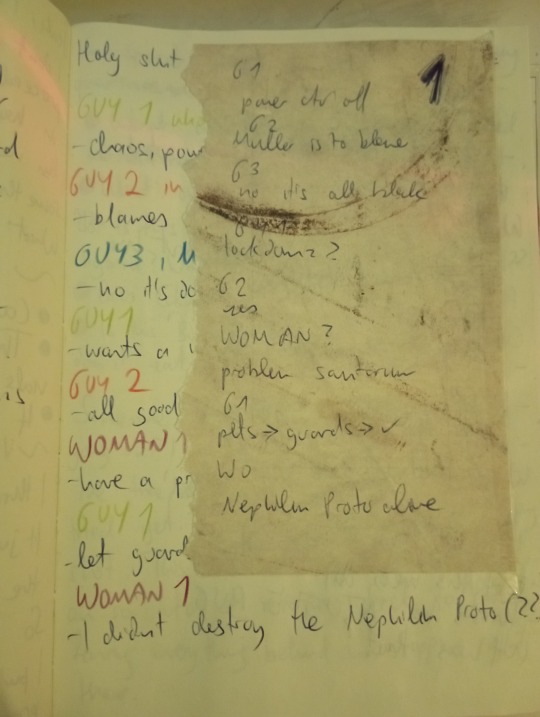 Holy shit
GUY 1
-chaos, pow
GUY 2
-blames
GUY3,
-no it's
GUY1
-wants a
GUY 2
-all good
WOMAN 1
-have a pr
GUY 1
-let guard
WOMAN 1
-I didnt destroy the Nephilim Proto (??
1
G1
power ctr off
G2
Muller is to blame
G3
no it's all
lockdown?
G2
yes
WOMAN?
problem sanitorium
G1
pets → guards → ✓
WO
Nephilim Proto alive
is